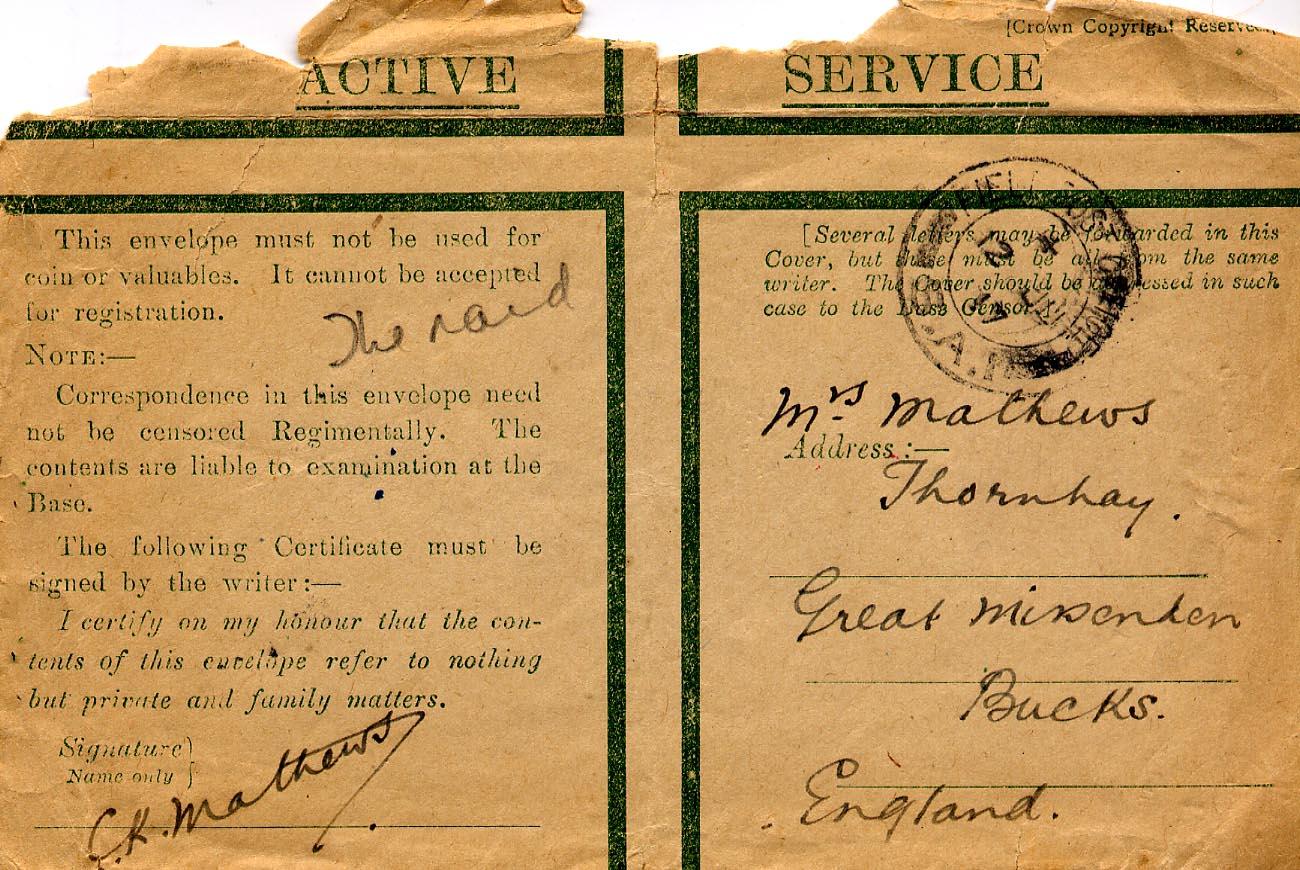 [Crown Copyright Reserved.]
ACTIVE SERVICE
This envelope must not be used for
coin or valuables. It cannot be accepted
for registration.
The raid
NOTE:—
Correspondence in this envelope need
not be censored Regimentally. The
contents are liable to examination at the
Base.
The following Certificate must be
signed by the writer:—
I certify on my honour that the con-
tents of this envelope refer to nothing
but private and family matters.
Signature }
Name only }
C.K. Mathews
[Several letters may be forwarded in this
Cover, but these must be all from the same
writer. The Cover should be addressed in such
case to the Base Censor.]
FIELD POST OFFICE
Mrs Mathews
Address:—
Thornhay.
Great Missenden
Bucks.
England.